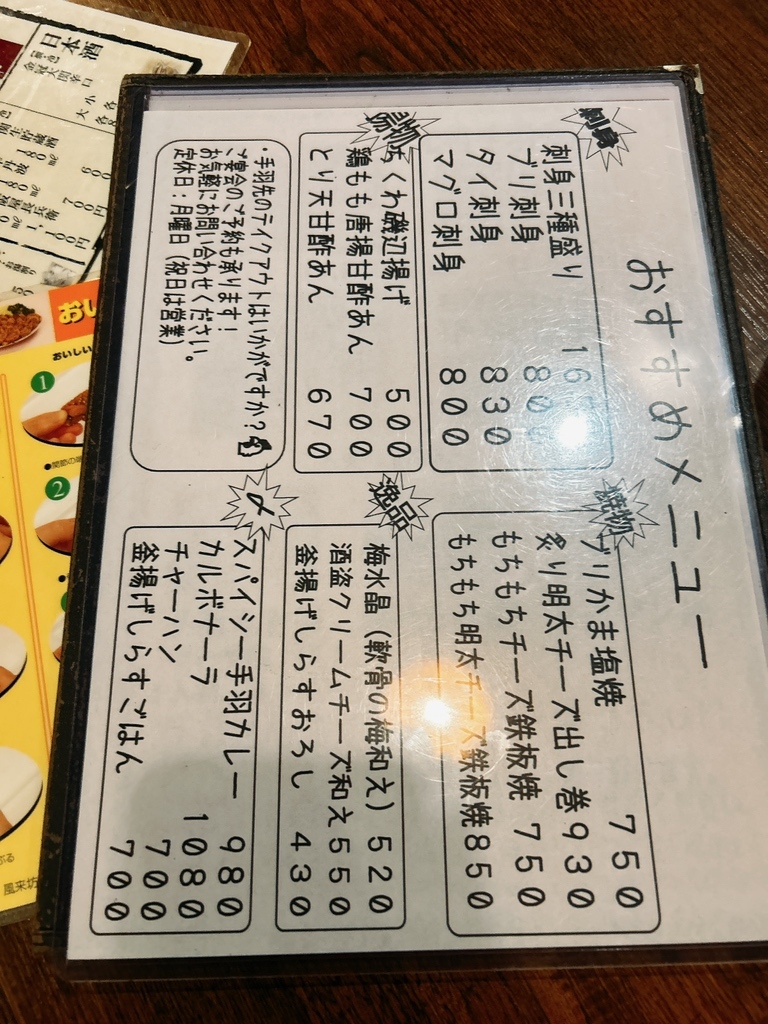 おすすめメニュー
刺身
刺身三種盛り
ブリ刺身 80
タイ刺身 830
マグロ刺身 800
揚物
ちくわ磯辺揚げ 500
鶏もも唐揚甘酢あん 700
とり天甘酢あん 670
・手羽先のテイクアウトはいかがですか？
ご宴会のご予約も承ります！
お気軽にお問い合わせください。
定休日：月曜日（祝日は営業）
焼物
ブリかま塩焼 750
炙り明太チーズ出し巻 930
もちもちチーズ鉄板焼 750
もちもち明太チーズ鉄板焼 850
逸品
梅水晶（軟骨の梅和え） 520
酒盗クリームチーズ和え 550
釜揚げしらすおろし 430
〆
スパイシー手羽カレー 980
カルボナーラ 1080
チャーハン 700
釜揚げしらすごはん 700
日本酒
180㎖
700円
1,100円
おい
おいしい
1
2
風来坊